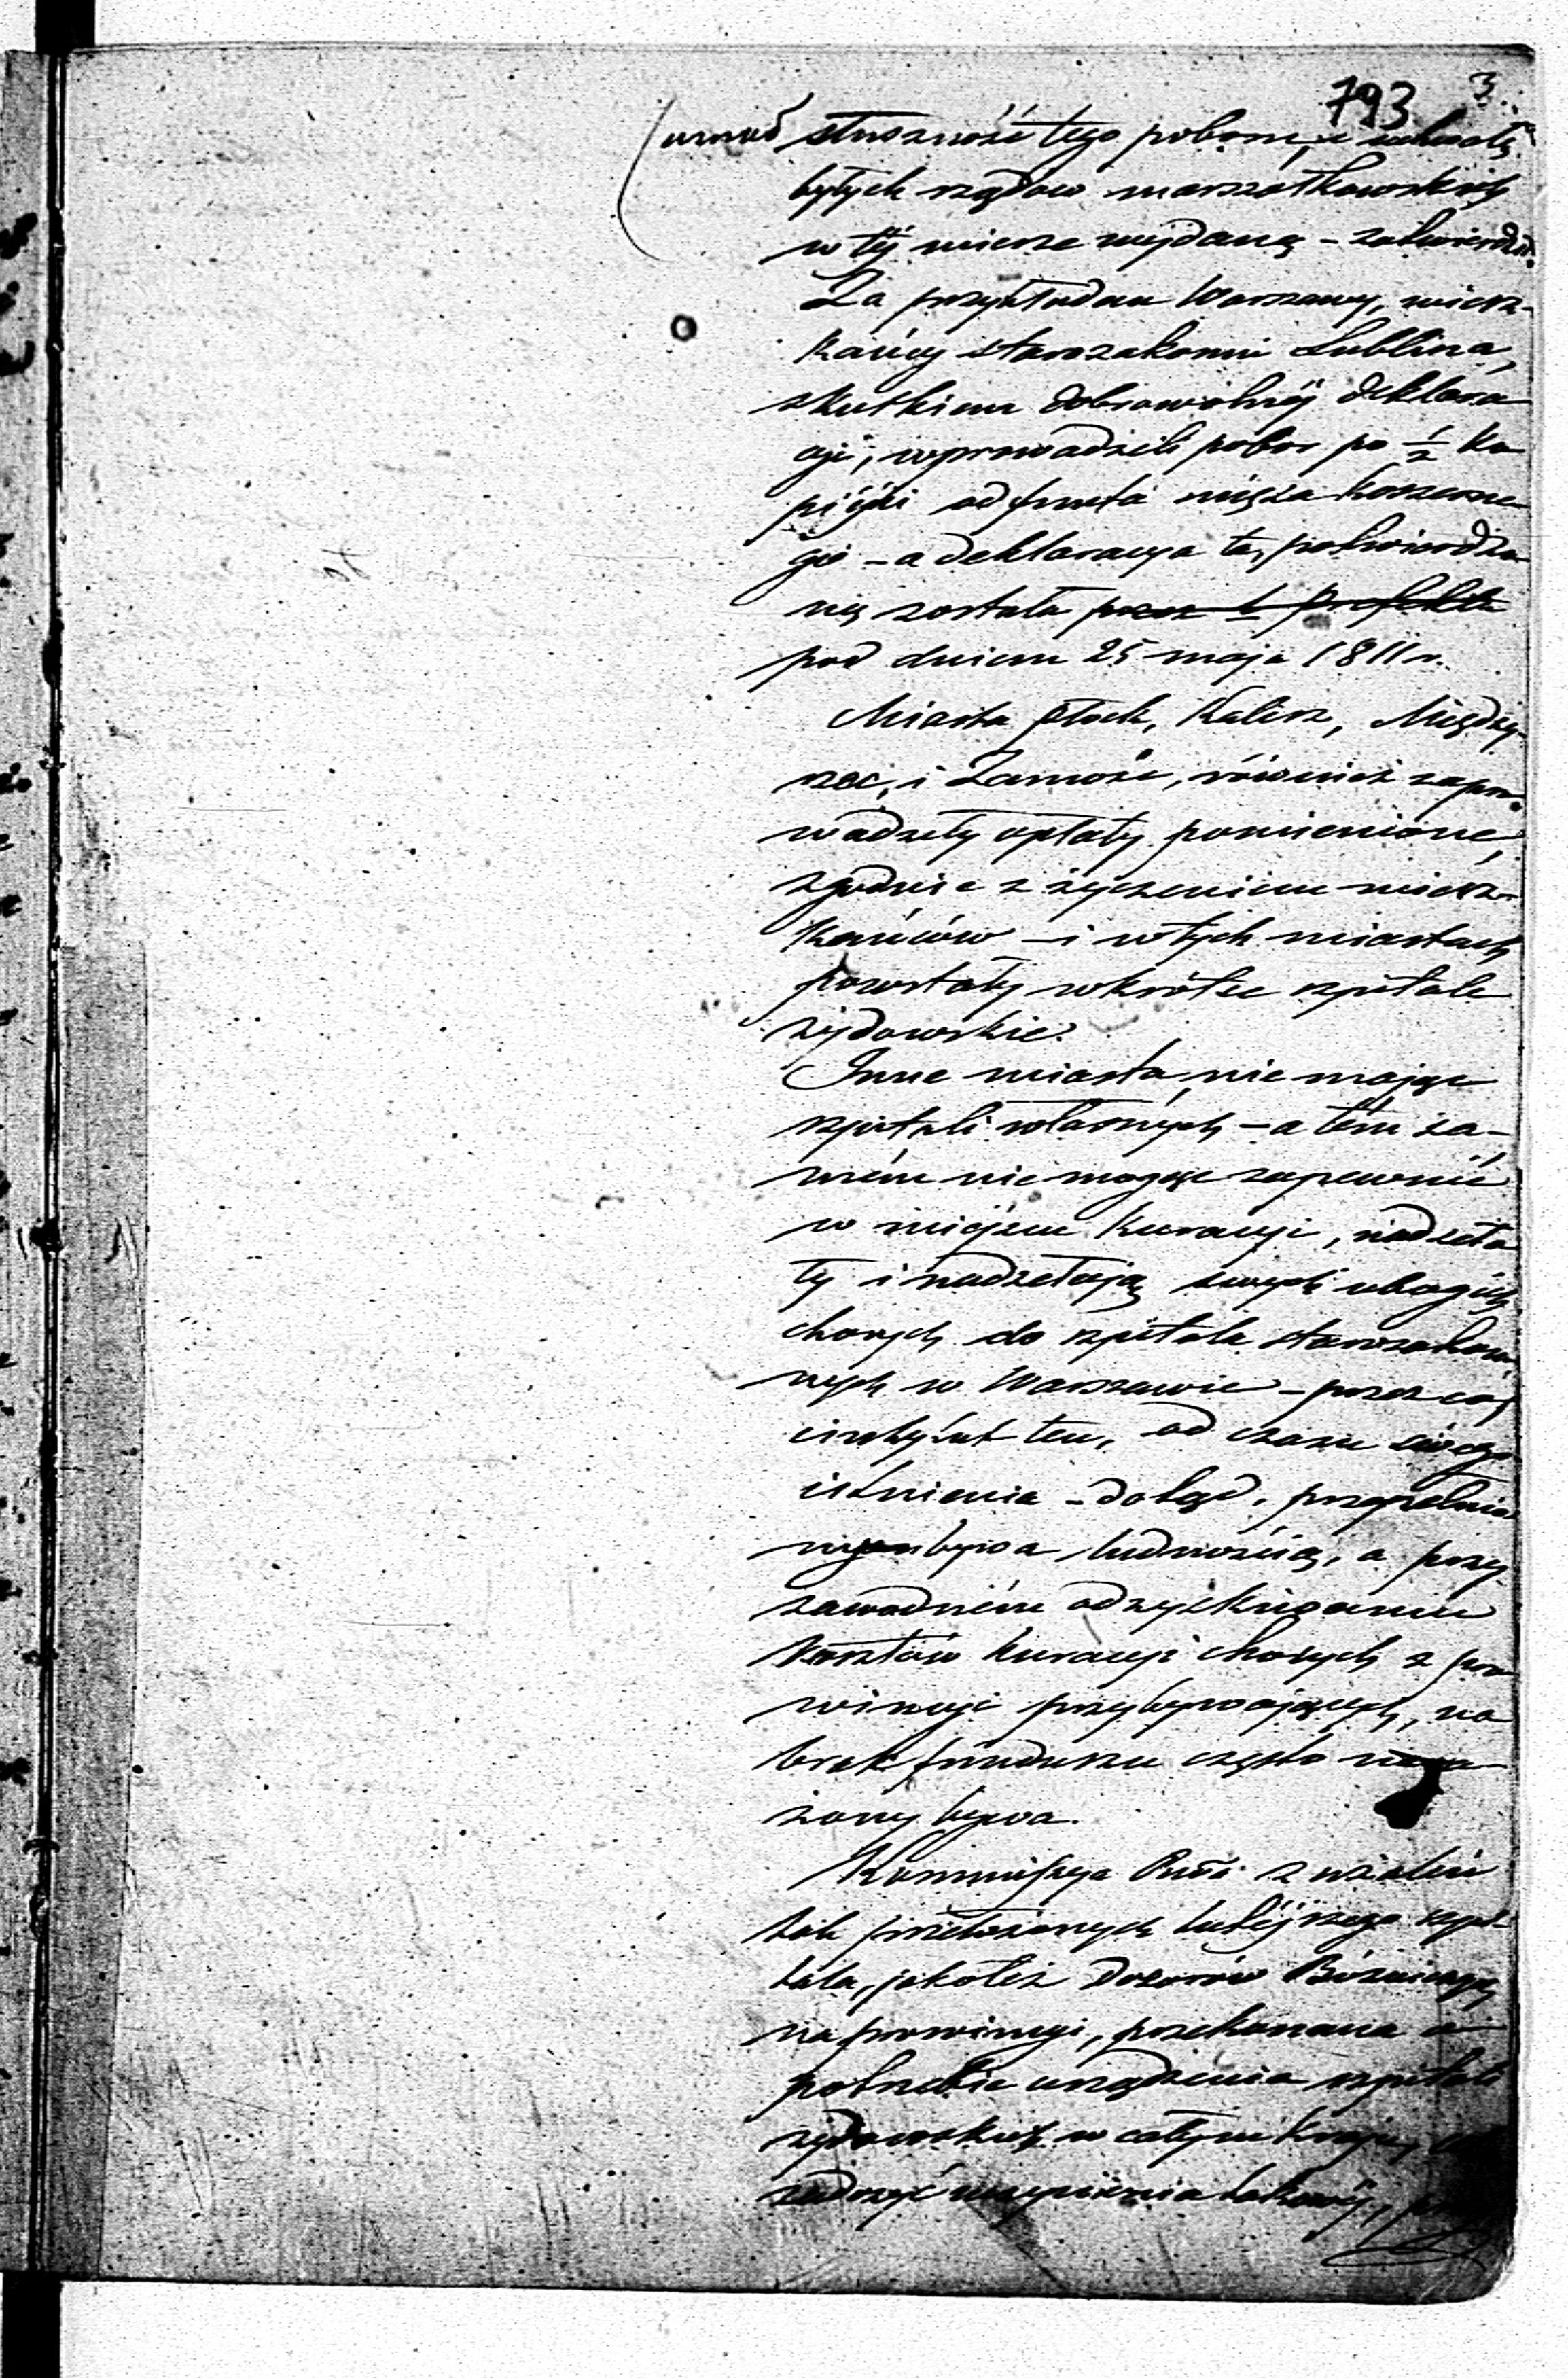 793 3.
uznał słuszność tego poboru, i uchwałę
byłych rządow marszałkowskich
w téj mierze wydaną – zatwierdził.
Za przykładem Warszawy, miesz-
kańcy starozakonni Lublina,
skutkiem dobrowolnéj deklara
cji, wprowadzili pobor po ½ ko
piéjki od funta mięsa koszerne
go – a deklaracya ta, potwierdzo
ną została przez b. Prefekta
pod dniem 25 maja 1811 r.
Miasta Płock, Kalisz, Międzyrz-
rzec, i Zamość, również zapro
wadziły opłaty pomienione,
zgodnie z życzeniem miesz-
kańców – i w tych miastach
powstały wkrótce szpitale
żydowskie.
Inne miasta, nie mając
szpitali własnych – a tém sa-
mém nie mogąc zapewnić
w miejscu kuracyi, nadseła
ły i nadsełają swych ubogich
chorych do szpitala starozakon
nych w Warszawie – przez co,
instytut ten, od czasu swego
istnienia – dotąd, przepełnio
nym bywa ludnością, a przy
zawodném odzyskiwaniu
kosztów kuracyi chorych z pro
wincyi przybywających, na
brak funduszu często nara-
żony bywa.
Kommissya Rząd: z
tak przełożonych tutéjszego szpi-
tala, jakotéż Dozorów Bóżniczych
na prowincyi, przekonana o
potrzebie urządzenia szpitali
żydowskich w całym kraju,
zadosyć uczynienia takowéj,